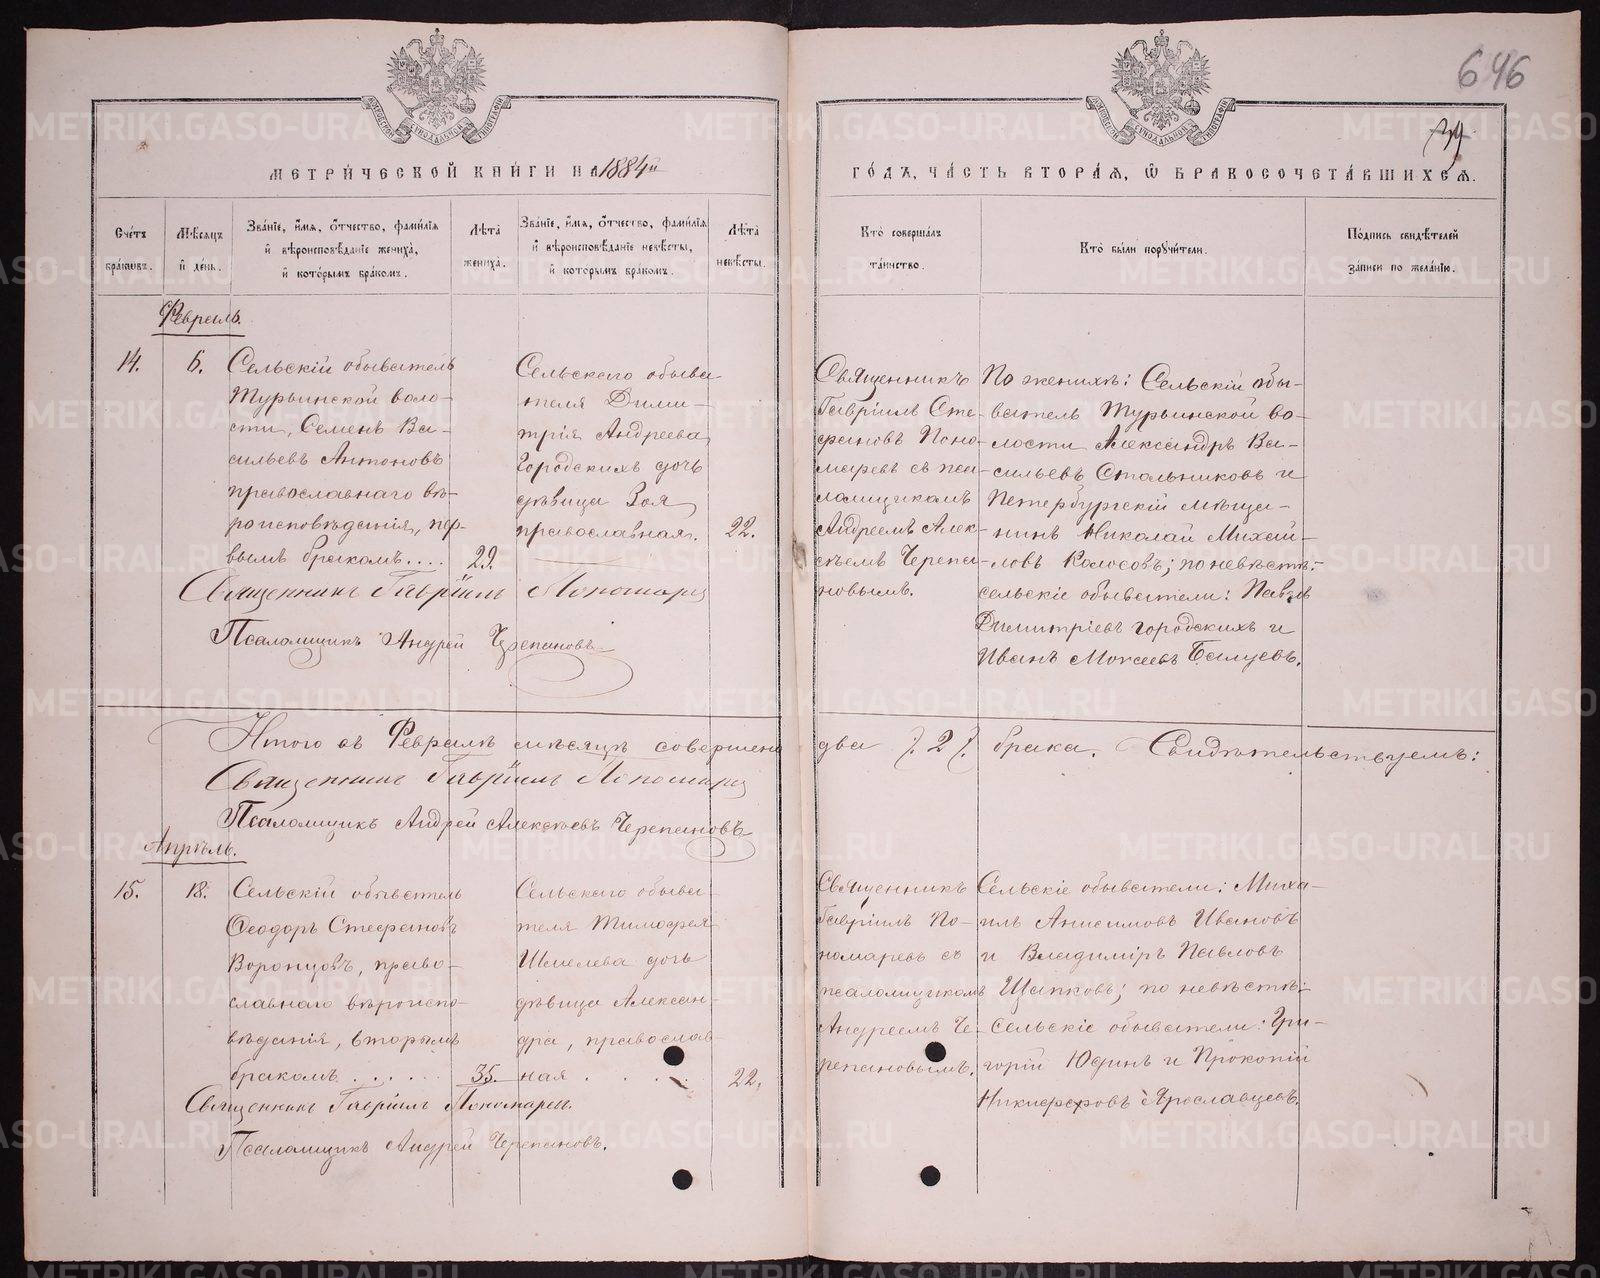 646
39
МЕТРИ́ЧЕСКОЙ КНИ́ГИ НА 1884й
ГО́ДЪ, ЧА́СТЬ ВТОРА́Я, Ѿ БРАКОСОЧЕТА́ВШИХСЯ.
Сче́тъ бра́ковъ.
Мѣ́сяцъ и де́нь.
Зва́нїе, и́мя, о́тчество, фами́лїя и вѣроисповѣ́данїе жениха́, и кото́рымъ бра́комъ.
Лѣ́та жениха́.
Зва́нїе, и́мя, о́тчество, фами́лїя и вѣроисповѣ́данїе невѣ́сты, и кото́рымъ бра́комъ.
Лѣ́та невѣ́сты.
Кто̀ соверша́лъ та́инство.
Кто̀ бы́ли поручи́тели.
По́дпись свидѣ́телей за́писи по жела́нїю.
Февраль.
14.
6.
Сельскій обыватель
Турьинской воло-
сти, Семенъ Ва-
сильевъ Антоновъ
православнаго вѣ-
роисповѣданія, пер-
вымъ бракомъ....
29.
Сельскаго обыва-
теля Дими-
трія Андреева
Городскихъ дочь
дѣвица Зоя
православная.
22.
Священникъ
Гавріилъ Сте-
фановъ Поно-
маревъ съ пса-
ломщикомъ
Андреемъ Алек-
сѣемъ Черепа-
новымъ.
По женихѣ: Сельскій обы-
ватель Турьинской во-
лости Александръ Ва-
сильевъ Стольниковъ и
Петербургскій мѣща-
нинъ Николай Михай-
ловъ Колосовъ; по невѣстѣ:
сельскіе обыватели: Павелъ
Димитріевъ Городскихъ и
Иванъ Моисеевъ Балуевъ.
Священникъ Гавріилъ Пономаревъ
Псаломщикъ Андрей Черепановъ
Итого въ Февралѣ мѣсяцѣ совершено два /.2/. брака. Свидѣтельствуемъ:
Священникъ Гавріилъ Пономаревъ
Псаломщикъ Андрей Алексѣевъ Черепановъ
Апрѣль.
15.
18.
Сельскій обыватель
Ѳеодоръ Стефановъ
Воронцовъ, право-
славнаго вѣроиспо-
вѣданія, вторымъ
бракомъ......
35.
Сельскаго обыва-
теля Тимофея
Шмелева дочь
дѣвица Алексан-
дра, православ-
ная . . . .
22.
Священникъ
Гавріилъ По-
номаревъ съ
псаломщикомъ
Андреемъ Че-
репановымъ.
Сельскіе обыватели: Миха-
илъ Анисимовъ Ивановъ
и Владиміръ Павловъ
Щапковъ; по невѣстѣ:
Сельскіе обыватели: Гри-
горій Юдинъ и Прокопій
Никифоровъ Ярославцевъ.
Священникъ Гавріилъ Пономаревъ.
Псаломщикъ Андрей Черепановъ.
METRIKI.GASO-URAL.RU